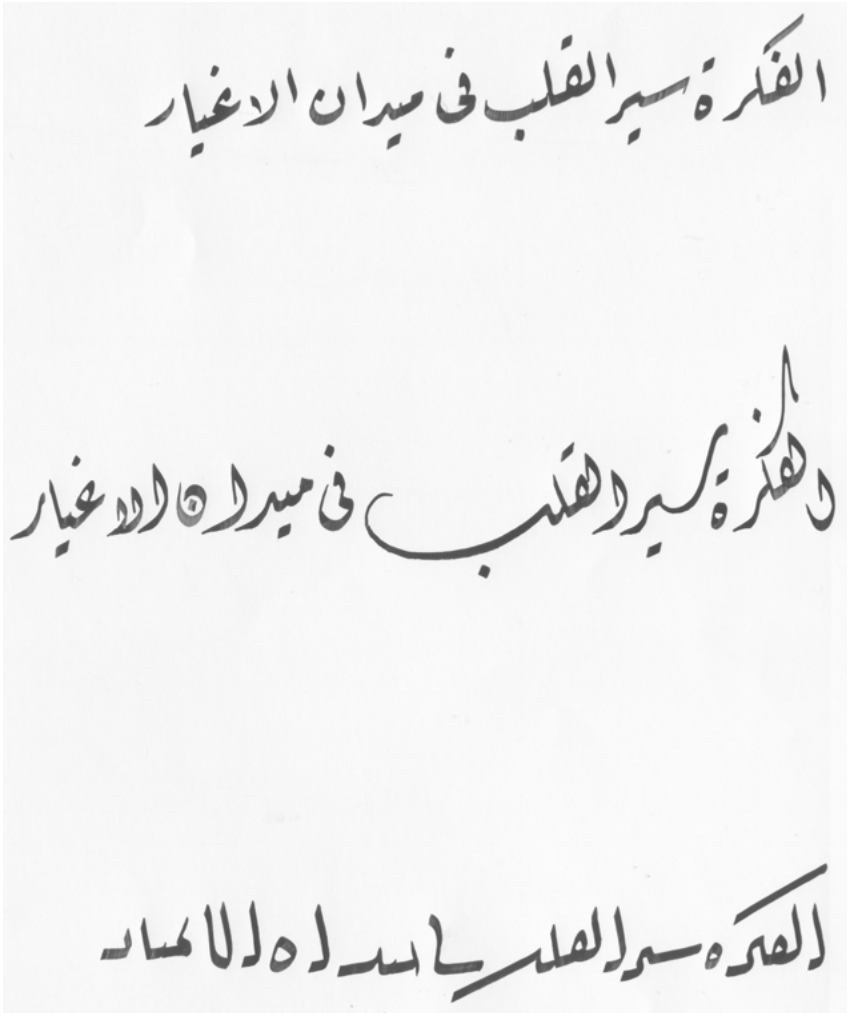 الفكرة سير القلب فى ميدان الاغيار
الفكرة سير القلب فى ميدان الاغيار
الفكره سير القلب فى ميدان الاغيار